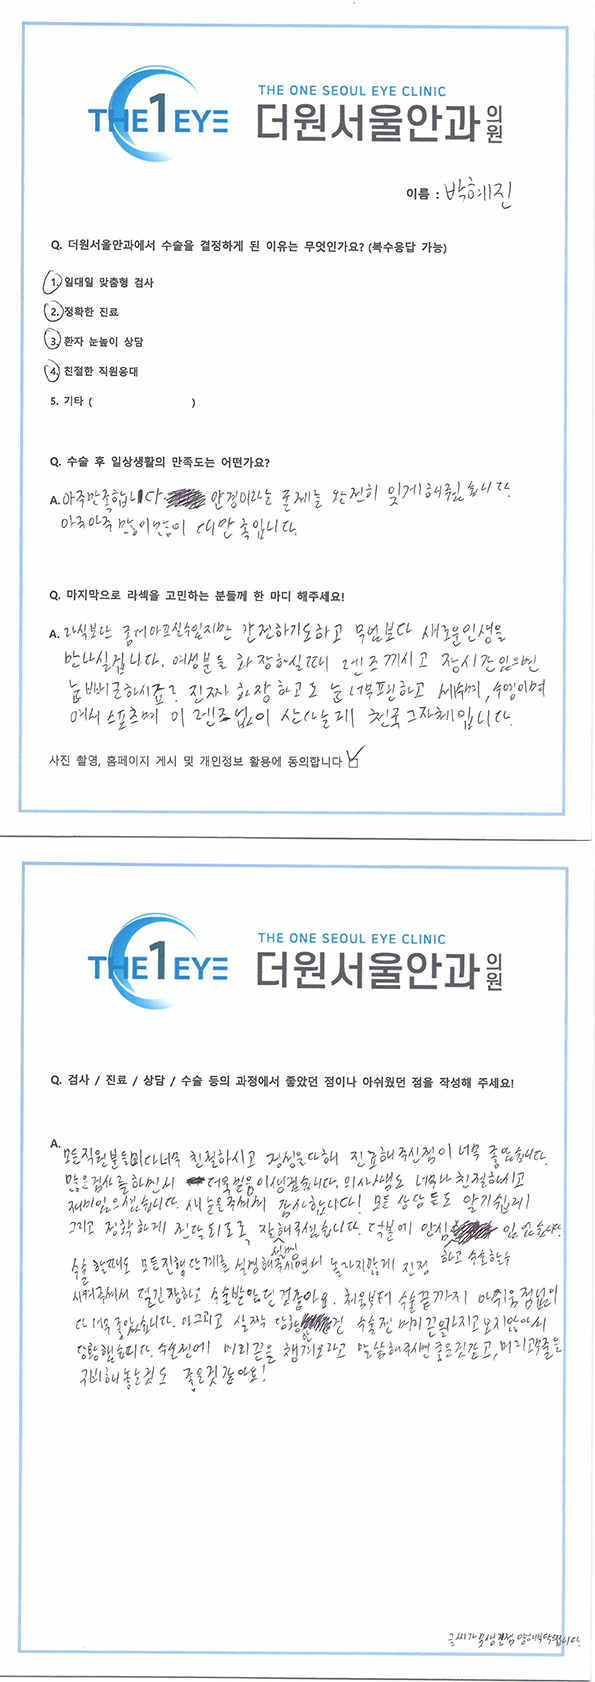 THE 1 EYE
THE ONE SEOUL EYE CLINIC
더원서울안과의원
이름 : 박혜진
Q. 더원서울안과에서 수술을 결정하게 된 이유는 무엇인가요? (복수응답 가능)
1. 일대일 맞춤형 검사
2. 정확한 진료
3. 환자 눈높이 상담
4. 친절한 직원응대
5. 기타 (                    )
Q. 수술 후 일상생활의 만족도는 어떤가요?
A. 아주만족합니다. 안경이라는 굴레를 완전히 잊게해주셨습니다.
아주아주 많이많이 대만족입니다.
Q. 마지막으로 라섹을 고민하는 분들께 한 마디 해주세요!
A. 라식보단 좀더아프실수있지만 안전하기도하고 무엇보다 새로운인생을
만나실겁니다. 여성분들 화장하실때 렌즈끼시고 장시간있으면
눈 뻑뻑하시죠? 진짜 화장하고도 눈 너무편하고 세수며, 수영이며
여서 스포츠며 이 렌즈없이 산다는게 천국그자체입니다.
사진 촬영, 홈페이지 게시 및 개인정보 활용에 동의합니다
THE 1 EYE
THE ONE SEOUL EYE CLINIC
더원서울안과의원
Q. 검사 / 진료 / 상담 / 수술 등의 과정에서 좋았던 점이나 아쉬웠던 점을 작성해 주세요!
A. 모든직원분들이다너무 친절하시고 정성을다해 진료해주신점이 너무 좋았습니다.
많은검사를하면서 더욱믿음이생겼습니다. 의사쌤도 너무나 친절하시고
재미있으셨습니다. 새눈을주셔서 감사합니다! 모든 상담들도 알기쉽게
그리고 정확하게 전달되도록 잘해주셨습니다. 덕분에 안심
수술할때도 모든진행단계를 설명해주시면서 놀라지않게 진정하고 수술할수
시켜주셔서 덜긴장하고 수술받았던것같아요. 처음부터 수술끝까지 아쉬움점없이
다너무좋았습니다. 아그리고 살짝 당황한건 수술전 머리끈을가지고오지않아서
당황했습니다. 수술전에 머리끈을 챙겨오라고 말씀해주시면좋을것같고, 머리고무줄을
구비해놓는것도 좋을것같아요!
글씨가 못생긴점 양해부탁드립니다.